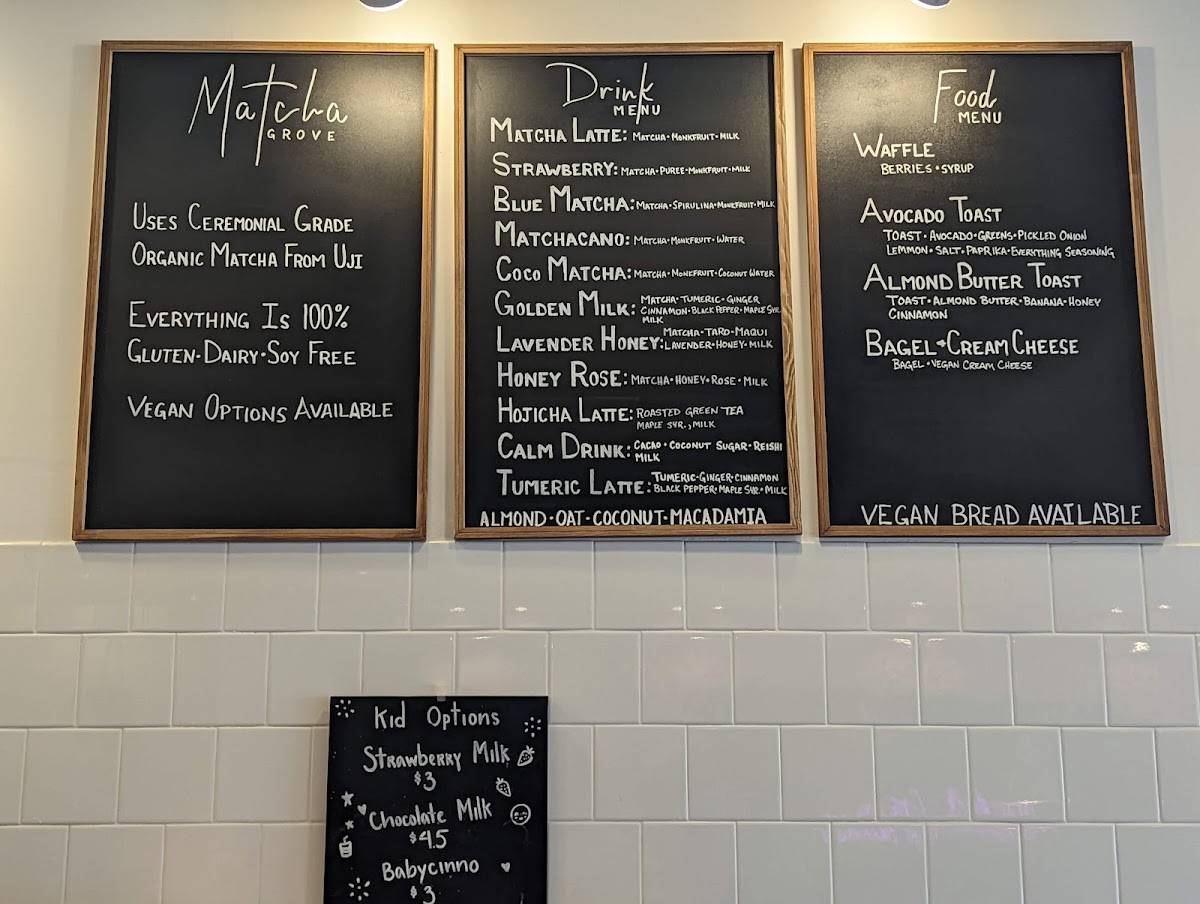 Matcha
GROVE
USES CEREMONIAL GRADE
ORGANIC MATCHA FROM UJI
EVERYTHING IS 100%
GLUTEN·DAIRY·SOY FREE
VEGAN OPTIONS AVAILABLE
Drink
MENU
MATCHA LATTE: MATCHA·MONKFRUIT·MILK
STRAWBERRY: MATCHA·PUREE·MONKFRUIT·MILK
BLUE MATCHA: MATCHA·SPIRULINA·MONKFRUIT·MILK
MATCHACANO: MATCHA·MONKFRUIT·WATER
COCO MATCHA: MATCHA·MONKFRUIT·COCONUT WATER
GOLDEN MILK: MATCHA·TUMERIC·GINGER
CINNAMON·BLACK PEPPER·MAPLE SYR.
MILK
LAVENDER HONEY: MATCHA·TARO·MAQUI
LAVENDER·HONEY·MILK
HONEY ROSE: MATCHA·HONEY·ROSE·MILK
HOJICHA LATTE: ROASTED GREEN TEA
MAPLE SYR., MILK
CALM DRINK: CACAO·COCONUT SUGAR·REISHI
MILK
TUMERIC LATTE: TUMERIC·GINGER·CINNAMON
BLACK PEPPER·MAPLE SYR.·MILK
ALMOND·OAT·COCONUT·MACADAMIA
Food
MENU
WAFFLE
BERRIES·SYRUP
AVOCADO TOAST
TOAST·AVOCADO·GREENS·PICKLED ONION
LEMMON·SALT·PAPRIKA·EVERYTHING SEASONING
ALMOND BUTTER TOAST
TOAST·ALMOND BUTTER·BANANA·HONEY
CINNAMON
BAGEL+CREAM CHEESE
BAGEL·VEGAN CREAM CHEESE
VEGAN BREAD AVAILABLE
Kid Options
Strawberry Milk
$3
Chocolate Milk
$4.5
Babycinno
$3